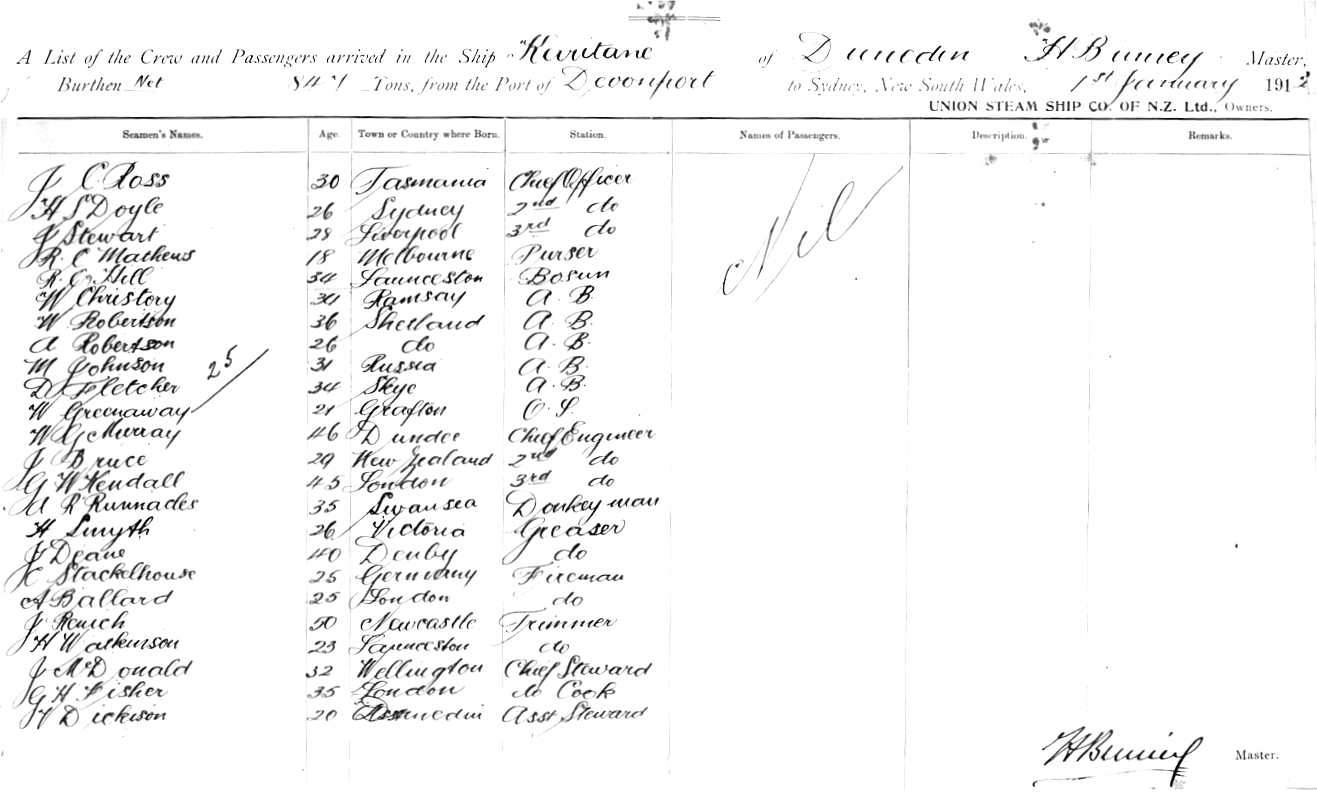 A List of the Crew and Passengers arrived in the Ship "Kuritane" of Dunedin H Burney Master,
Burthen Net 847 Tons, from the Port of Devonport to Sydney, New South Wales, 1st January 191
UNION STEAM SHIP CO. OF N.Z. Ltd., Owners.
Seamen's Names. Age. Town or Country where Born. Station. Names of Passengers. Description. Remarks.
J C Ross 30 Tasmania Chief Officer
H S Doyle 26 Sydney 2nd do
J Stewart 28 Liverpool 3rd do
Nil
R. C Mathews 18 Melbourne Purser
R. G. Hill 34 Launceston Bosun
W Christory 34 Ramsay A. B.
W Robertson 36 Shetland A. B.
A Robertson 26 do A. B.
M Johnson 31 Russia A. B.
25
D Fletcher 34 Skye A. B.
W Greenaway 21 Grafton O. S.
W G Murray 46 Dundee Chief Engineer
J Bruce 29 New Zealand 2nd do
G W Kendall 45 London 3rd do
A R Runnacles 35 Swansea Donkeyman
H Smyth 26 Victoria Greaser
J Deane 40 Denby do
Stackelhouse 25 Germany Fireman
A Ballard 25 London do
J Renich 50 Newcastle Trimmer
H Watkinson 23 Launceston do
J McDonald 32 Wellington Chief Steward
G H Fisher 35 London do Cook
Dickison 20 Dunedin Asst Steward
H Burney Master.